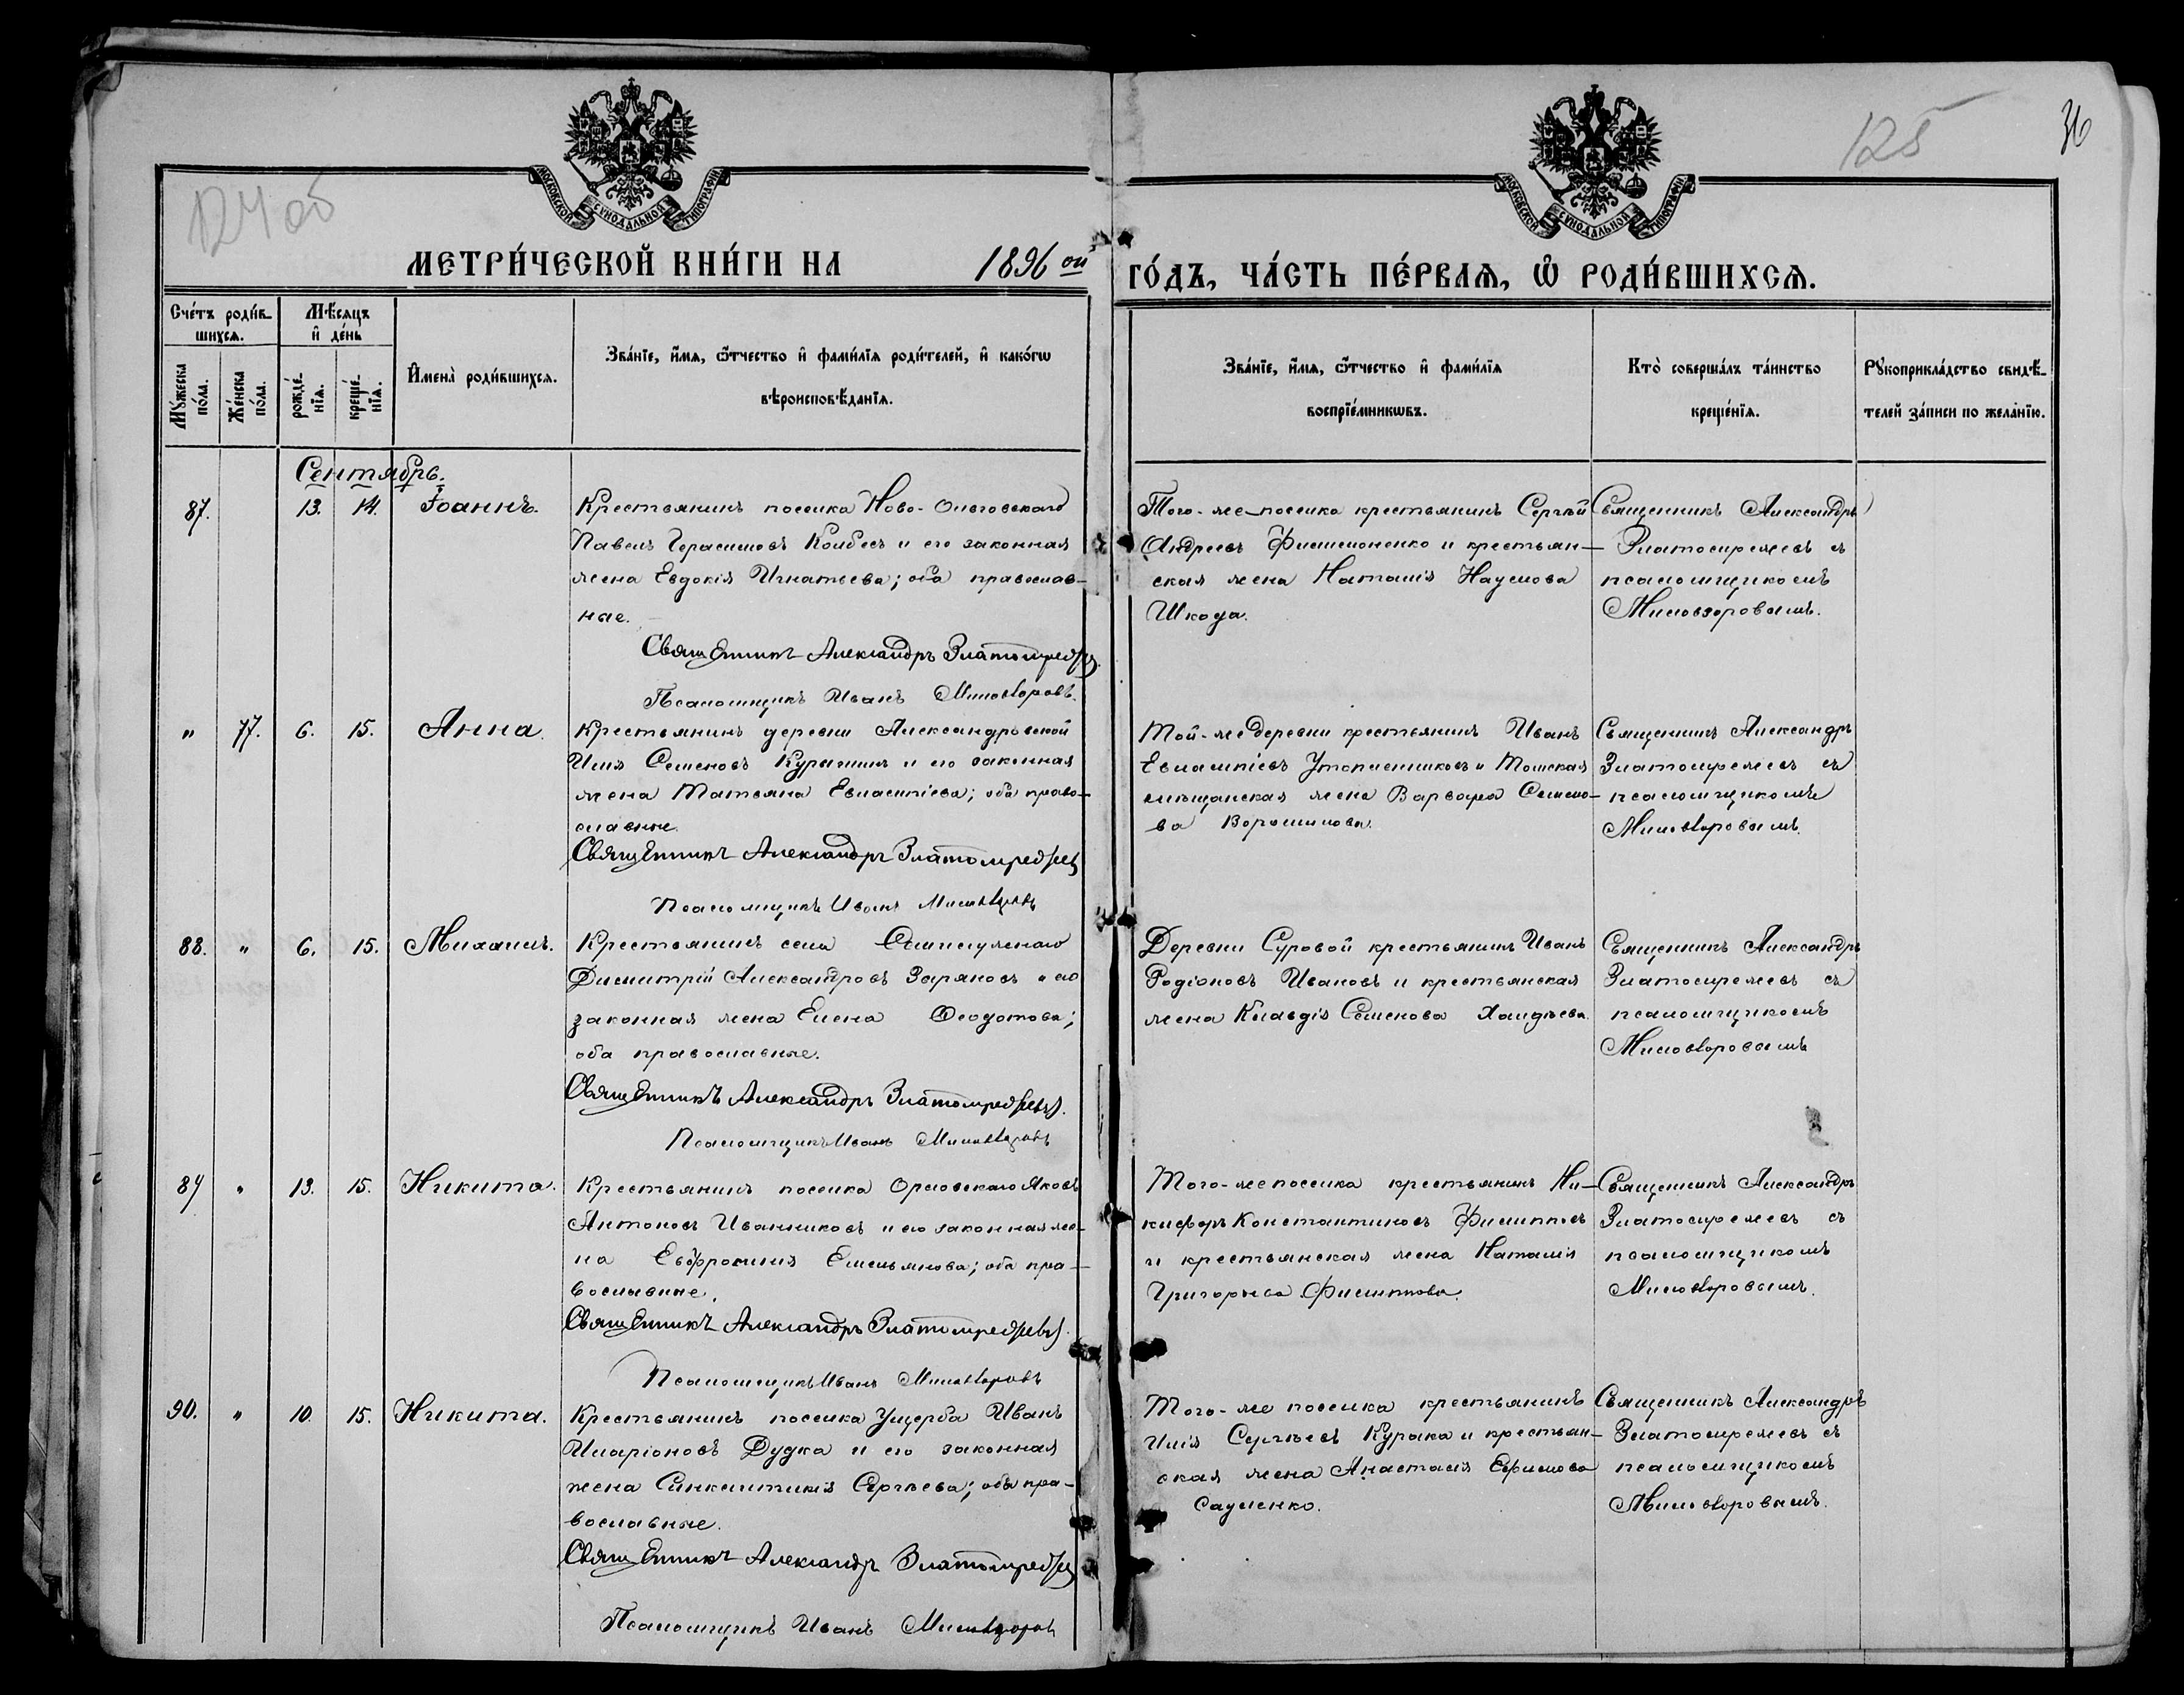 124 об
125
36
МОСКОВСКОЙ СУНОДАЛЬНОЙ ТИПОГРАФІИ
МОСКОВСКОЙ СУНОДАЛЬНОЙ ТИПОГРАФІИ
МЕТРИ́ЧЕСКОЙ КНИ́ГИ НА 1896 ой ГО́ДЪ, ЧА́СТЬ ПЕ́РВАЯ, Ѡ҆ РОДИ́ВШИХСЯ.
Сче́тъ роди́в-
шихся.
Мꙋ́жеска
по́ла.
Же́нска
по́ла.
Мѣ́сяцъ
и҆ де́нь
рожде́-
нїя.
креще́-
нїя.
И҆мена̀ роди́вшихся.
Зва́нїе, и҆́мя, ѻ҆́тчество и҆ фами́лїя роди́телей, и҆ како́гѡ
вѣроисповѣ́данїя.
Зва́нїе, и҆́мя, ѻ҆́тчество и҆ фами́лїя
воспрїе́мникѡвъ.
Кто̀ соверша́лъ та́инство
креще́нїя.
Рꙋкоприкла́дство свидѣ́-
телей за́писи по жела́нїю.
Сентябрь.
87. 13. 14. Іоаннъ.
Крестьянинъ поселка Ново-Ольговскаго
Павелъ Герасимовъ Колбесъ и его законная
жена Евдокія Игнатьева; оба православ-
ные.
Священникъ Александръ Златомрежевъ.
Псаломщикъ Иванъ Миловзоровъ.
Того-же поселка крестьянинъ Сергѣй
Андреевъ Филимоненко и крестьян-
ская жена Наталія Наумова
Шкода.
Священникъ Александръ
Златомрежевъ съ
псаломщикомъ
Миловзоровымъ.
" 77. 6. 15. Анна.
Крестьянинъ деревни Александровской
Илія Семеновъ Курагинъ и его законная
жена Татьяна Евлампіева; оба право-
славные.
Священникъ Александръ Златомрежевъ
Псаломщикъ Иванъ Миловзоровъ
Той-же деревни крестьянинъ Иванъ
Евлампіевъ Утопленниковъ и Томская
мѣщанская жена Варвара Семено-
ва Ворошилова.
Священникъ Александръ
Златомрежевъ съ
псаломщикомъ
Миловзоровымъ.
88. " 6. 15. Михаилъ.
Крестьянинъ села
Димитрій Александровъ Заряновъ и его
законная жена Елена Ѳеодотова;
оба православные.
Священникъ Александръ Златомрежевъ.
Псаломщикъ Иванъ Миловзоровъ
Деревни Суровой крестьянинъ Иванъ
Родіоновъ Ивановъ и крестьянская
жена Клавдія Семенова Халдѣева.
Священникъ Александръ
Златомрежевъ съ
псаломщикомъ
Миловзоровымъ
89 " 13. 15. Никита.
Крестьянинъ поселка Орловскаго Яковъ
Антоновъ Иванниковъ и его законная же-
на Евфросинія Емельянова; оба пра-
вославные.
Священникъ Александръ Златомрежевъ.
Псаломщикъ Иванъ Миловзоровъ
Того-же поселка крестьянинъ Ни-
кифоръ Константиновъ Филипповъ
и крестьянская жена Наталія
Григорьева Филиппова.
Священникъ Александръ
Златомрежевъ съ
псаломщикомъ
Миловзоровымъ.
90. " 10. 15. Никита.
Крестьянинъ поселка Ущерба Иванъ
Иларіоновъ Дудка и его законная
жена Синклитикія Сергѣева; оба пра-
вославные.
Священникъ Александръ Златомрежевъ
Псаломщикъ Иванъ Миловзоровъ
Того-же поселка крестьянинъ
Илія Сергѣевъ Курака и крестьян-
ская жена Анастасія Ефимова
Сауленко.
Священникъ Александръ
Златомрежевъ съ
псаломщикомъ
Миловзоровымъ.